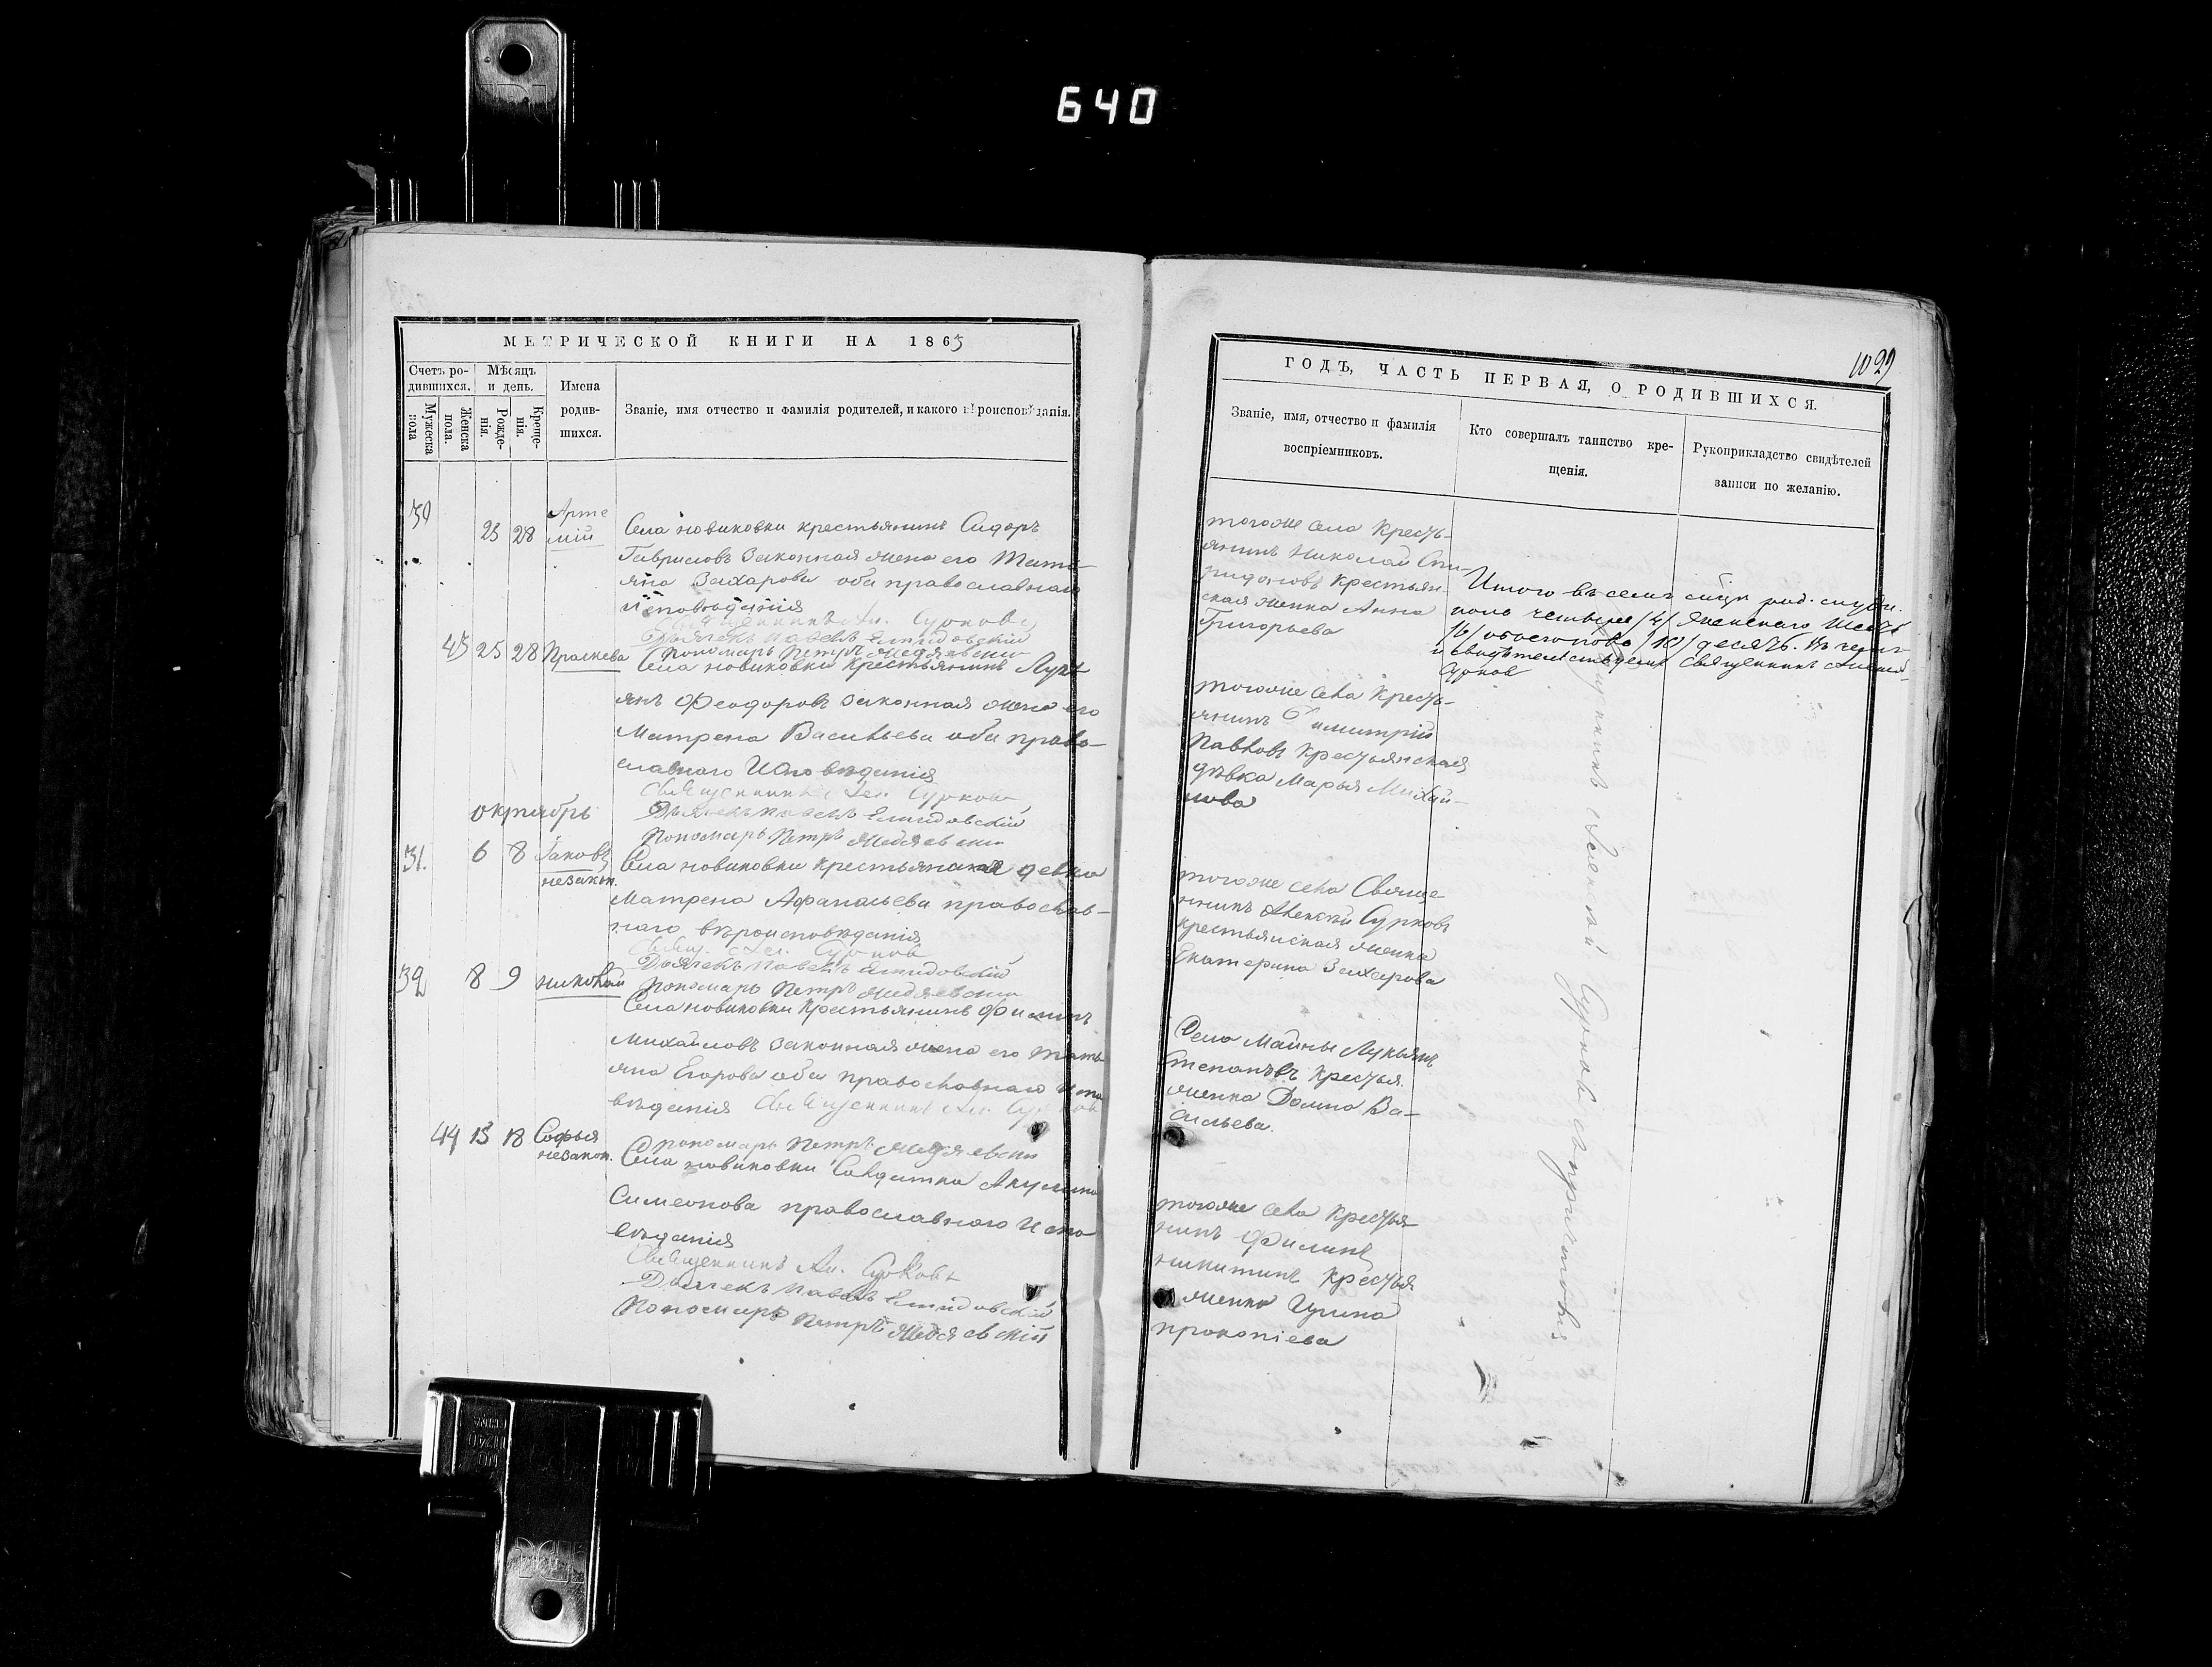 640
МЕТРИЧЕСКОЙ КНИГИ НА 1865
Счетъ ро-
дившихся.
Мѣсяцъ
и день.
Мужеска
пола
Женска
пола.
Рожде-
нія.
Креще-
нія.
Имена
родив-
шихся.
Званіе, имя отчество и фамилія родителей, и какого вѣроисповѣданія.
30 23 28 Арте
мій
Села новиковки крестьянинъ Сидоръ
Гавриловъ законная жена его Тать-
яна Захарова оба православнаго
исповѣданія
Священникъ Ал. Сурковъ
Дьячекъ Павелъ
Пономарь Петръ
43 25 28 Праскева
Села новиковки крестьянинъ Лукі
янъ Феодоровъ законная жена его
Матрена Васильева оба право-
славнаго Исповѣданія
Священникъ Ал. Сурковъ
Дьячекъ Павелъ
Пономарь Петръ
октябрь
31. 6 8 Іаковъ
незакон.
Села новиковки крестьянская девка
Матрена Афанасьева православ-
наго вѣроисповѣданія
Свящ. Ал. Сурковъ
Дьячекъ Павелъ
Пономарь Петръ
32 8 9 николай
Села новиковки крестьянинъ Филипъ
Михайловъ законная жена его Тать
яна Егорова оба православнаго испо
вѣданія Священникъ Ал. Сурковъ
Пономарь Петръ
44 13 18 Софья
незакон.
Села новиковки Солдатка Акулина
Симеонова православнаго Испо
вѣданія
Священникъ Ал. Сурковъ
Дьячекъ Павелъ
Пономарь Петръ
1029
ГОДЪ, ЧАСТЬ ПЕРВАЯ, О РОДИВШИХСЯ.
Званіе, имя, отчество и фамилія
воспріемниковъ.
Кто совершалъ таинство кре-
щенія.
Рукоприкладство свидѣтелей
записи по желанію.
тогоже села Кресть-
янинъ Николай Спи-
ридоновъ крестьян-
ская женка Анна
Григорьева
Итого въ семъ
пола четыре /4/ Женскаго Шесть
/6/ обоего пола /10/ десять.
Священникъ Алексѣй
Сурковъ
тогоже села Кресть-
янинъ Димитрій
Павловъ Крестьянская
дѣвка Марья Михай-
лова
тогоже села Свяще
нникъ Алексѣй Сурковъ
крестьянская женка
Екатерина Захарова
Священникъ Алексѣй Сурковъ съ причтомъ
Села Майны Лукьянъ
Степановъ Крестья.
женка Домна Ва-
сильева.
тогоже села Крестья
нинъ Филипъ
никитинъ Крестья
женка Ирина
прокопіева